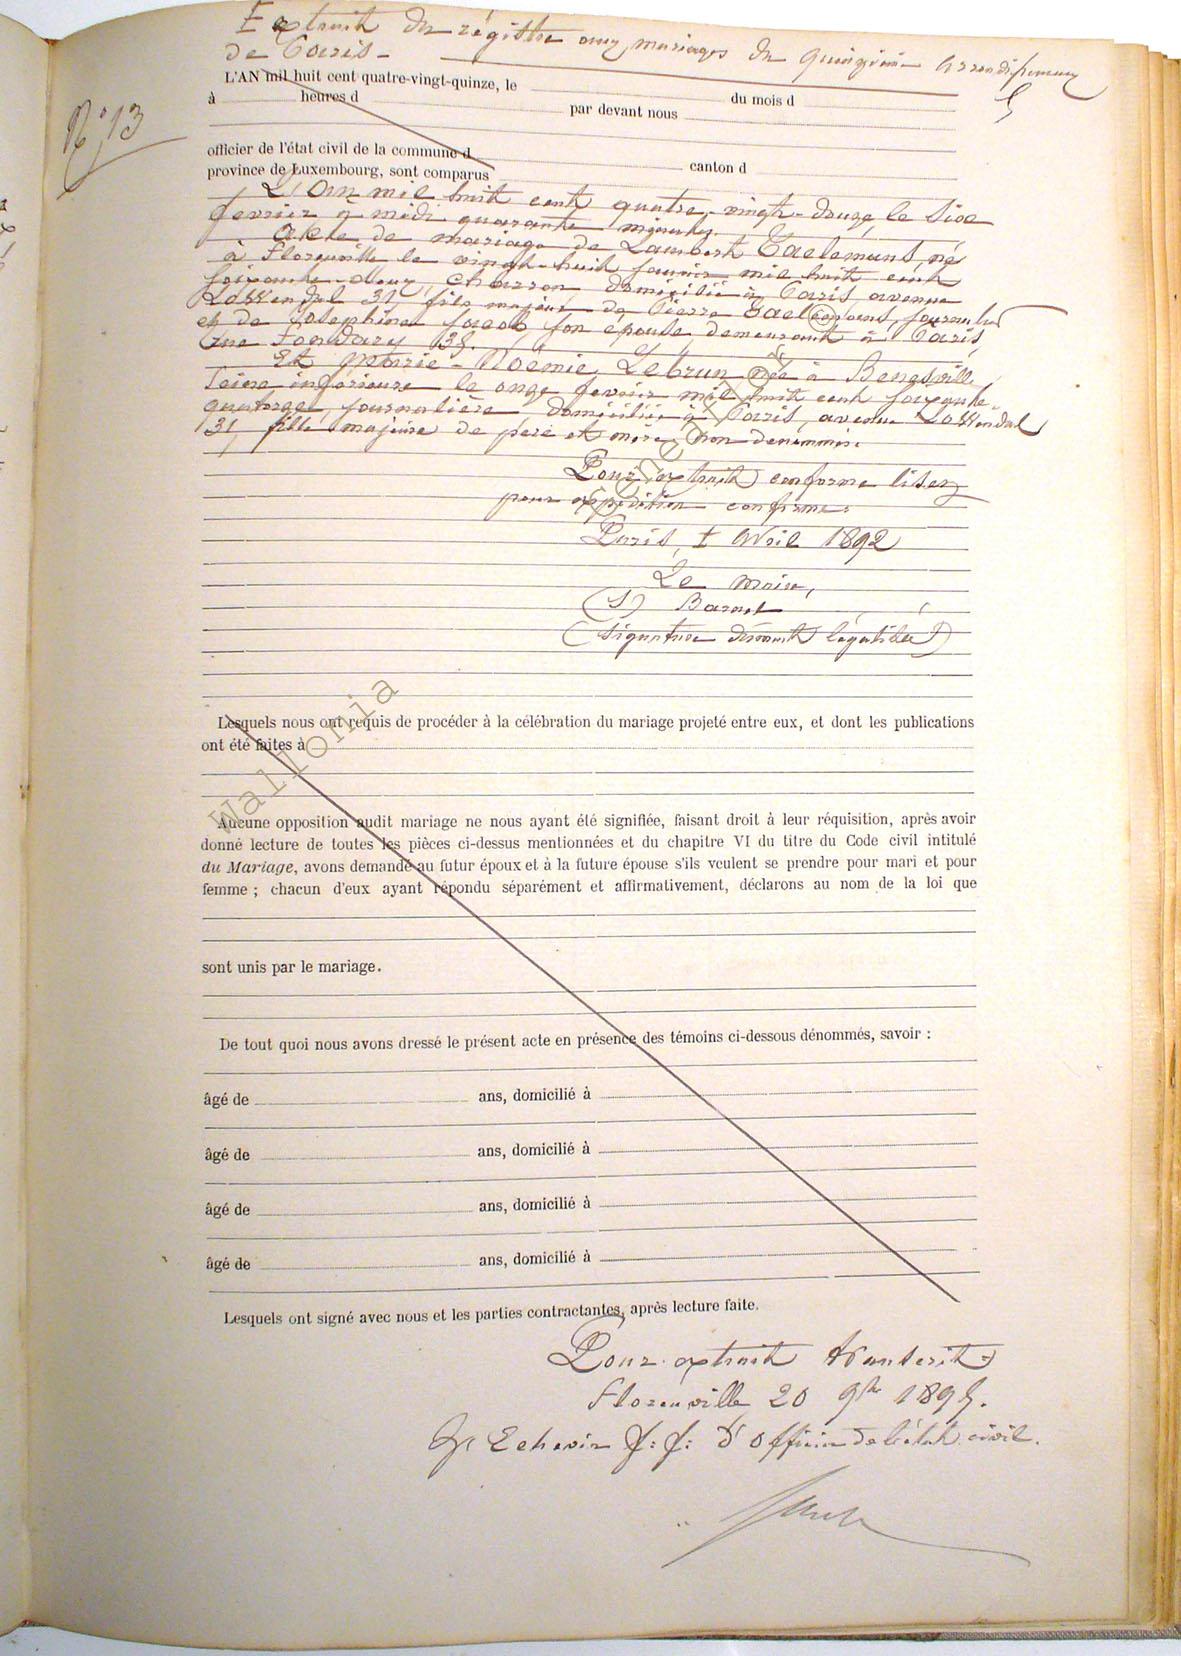 Extrait du régistre aux mariages du quinzième arrondissement
de Paris -
N° 13
L'AN mil huit cent quatre-vingt-quinze, le du mois d
à heures d par devant nous
officier de l'état civil de la commune d canton d
province de Luxembourg, sont comparus
L'an mil huit cent quatre-vingt-douze, le six
fevrier à midi quarante minutes.
Acte de mariage de Lambert Taelemans, né
à Florenville le vingt-huit janvier mil huit cent
soixante-deux, charron domicilié à Paris, avenue
Lowendal 31 fils majeur de Pierre Taelemans, journalier
et de Josephine Jacob, son epouse, demeurant à Paris,
rue Fondary 38.
Et Marie-Noëmie Lebrun née à
Seine inférieure le onze fevrier mil huit cent soixante-
quatorze, journalière, domiciliée à Paris, avenue Lowendal
31, fille majeure de père et mère non denommés.
Pour extrait conforme lisez
pour expédition conforme.
Paris, 1 Avril 1892
Le maire,
(S)
(signature dûment légalisée)
Wallonia
Lesquels nous ont requis de procéder à la célébration du mariage projeté entre eux, et dont les publications
ont été faites à
Aucune opposition audit mariage ne nous ayant été signifiée, faisant droit à leur réquisition, après avoir
donné lecture de toutes les pièces ci-dessus mentionnées et du chapitre VI du titre du Code civil intitulé
du Mariage, avons demandé au futur époux et à la future épouse s'ils veulent se prendre pour mari et pour
femme ; chacun d'eux ayant répondu séparément et affirmativement, déclarons au nom de la loi que
sont unis par le mariage.
De tout quoi nous avons dressé le présent acte en présence des témoins ci-dessous dénommés, savoir :
âgé de ans, domicilié à
âgé de ans, domicilié à
âgé de ans, domicilié à
âgé de ans, domicilié à
Lesquels ont signé avec nous et les parties contractantes, après lecture faite.
Pour extrait transcrit
Florenville 20 9bre 1895.
L'Echevin f: f: d'Officier de l'état civil.